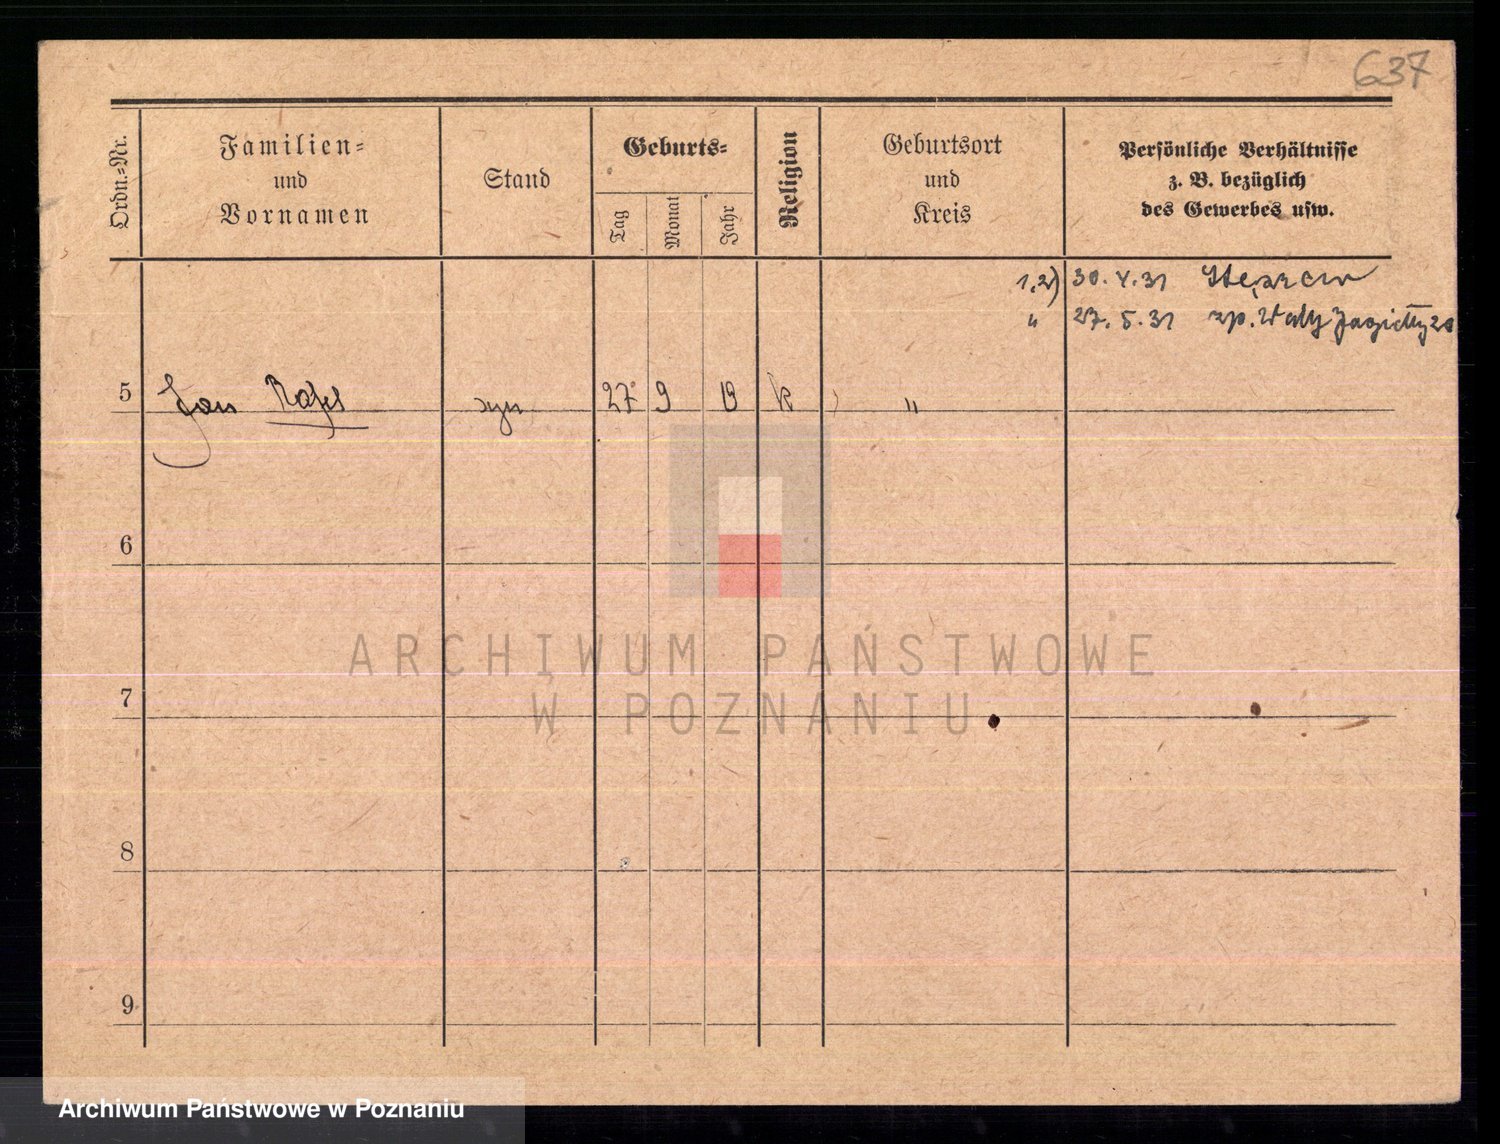 637
Ordn.=Nr.
Familien=
und
Vornamen
Stand
Geburts=
Tag
Monat
Jahr
Religion
Geburtsort
und
Kreis
Persönliche Verhältnisse
z. B. bezüglich
des Gewerbes usw.
1,2) 30. 4. 31 Stęszew
" 27. 5. 31 Wały Jagiełły 20
5 Jan syn 27 9 k "
6
7
8
9
ARCHIWUM PAŃSTWOWE
W POZNANIU
Archiwum Państwowe w Poznaniu